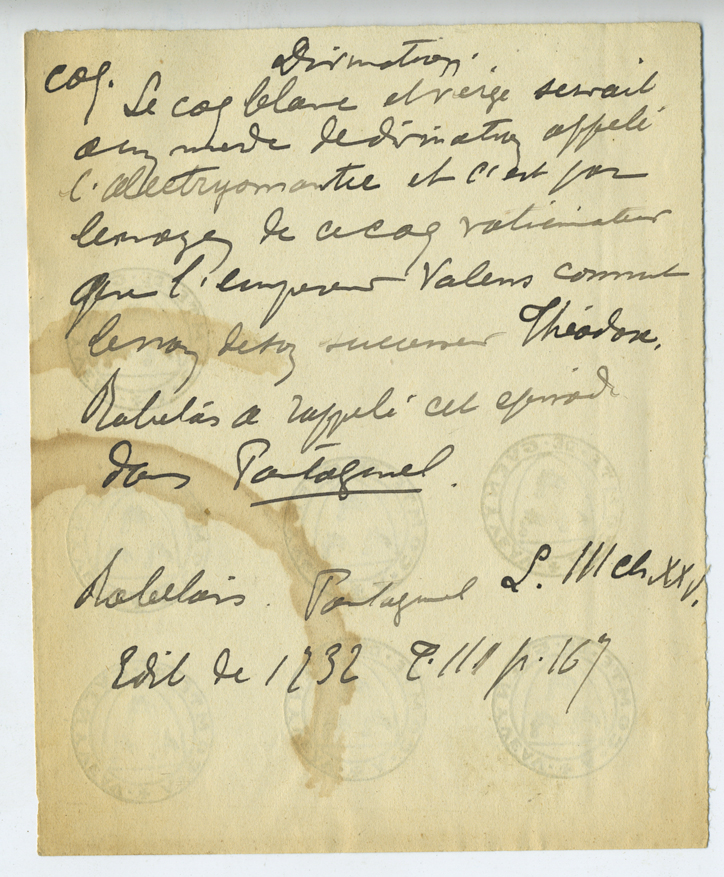 coq. Divination.
Le coq blanc et vierge servait
a un mode de divination appelé
l'alectryomantie et c'est par
le moyen de ce coq vaticinateur
que l'empereur Valens connut
le nom de son successeur Théodose.
Rabelais a rappelé cet episode
dans Pantagruel.
Rabelais. Pantagruel L. III ch. XXV.
Edit de 1732 T. III p. 167